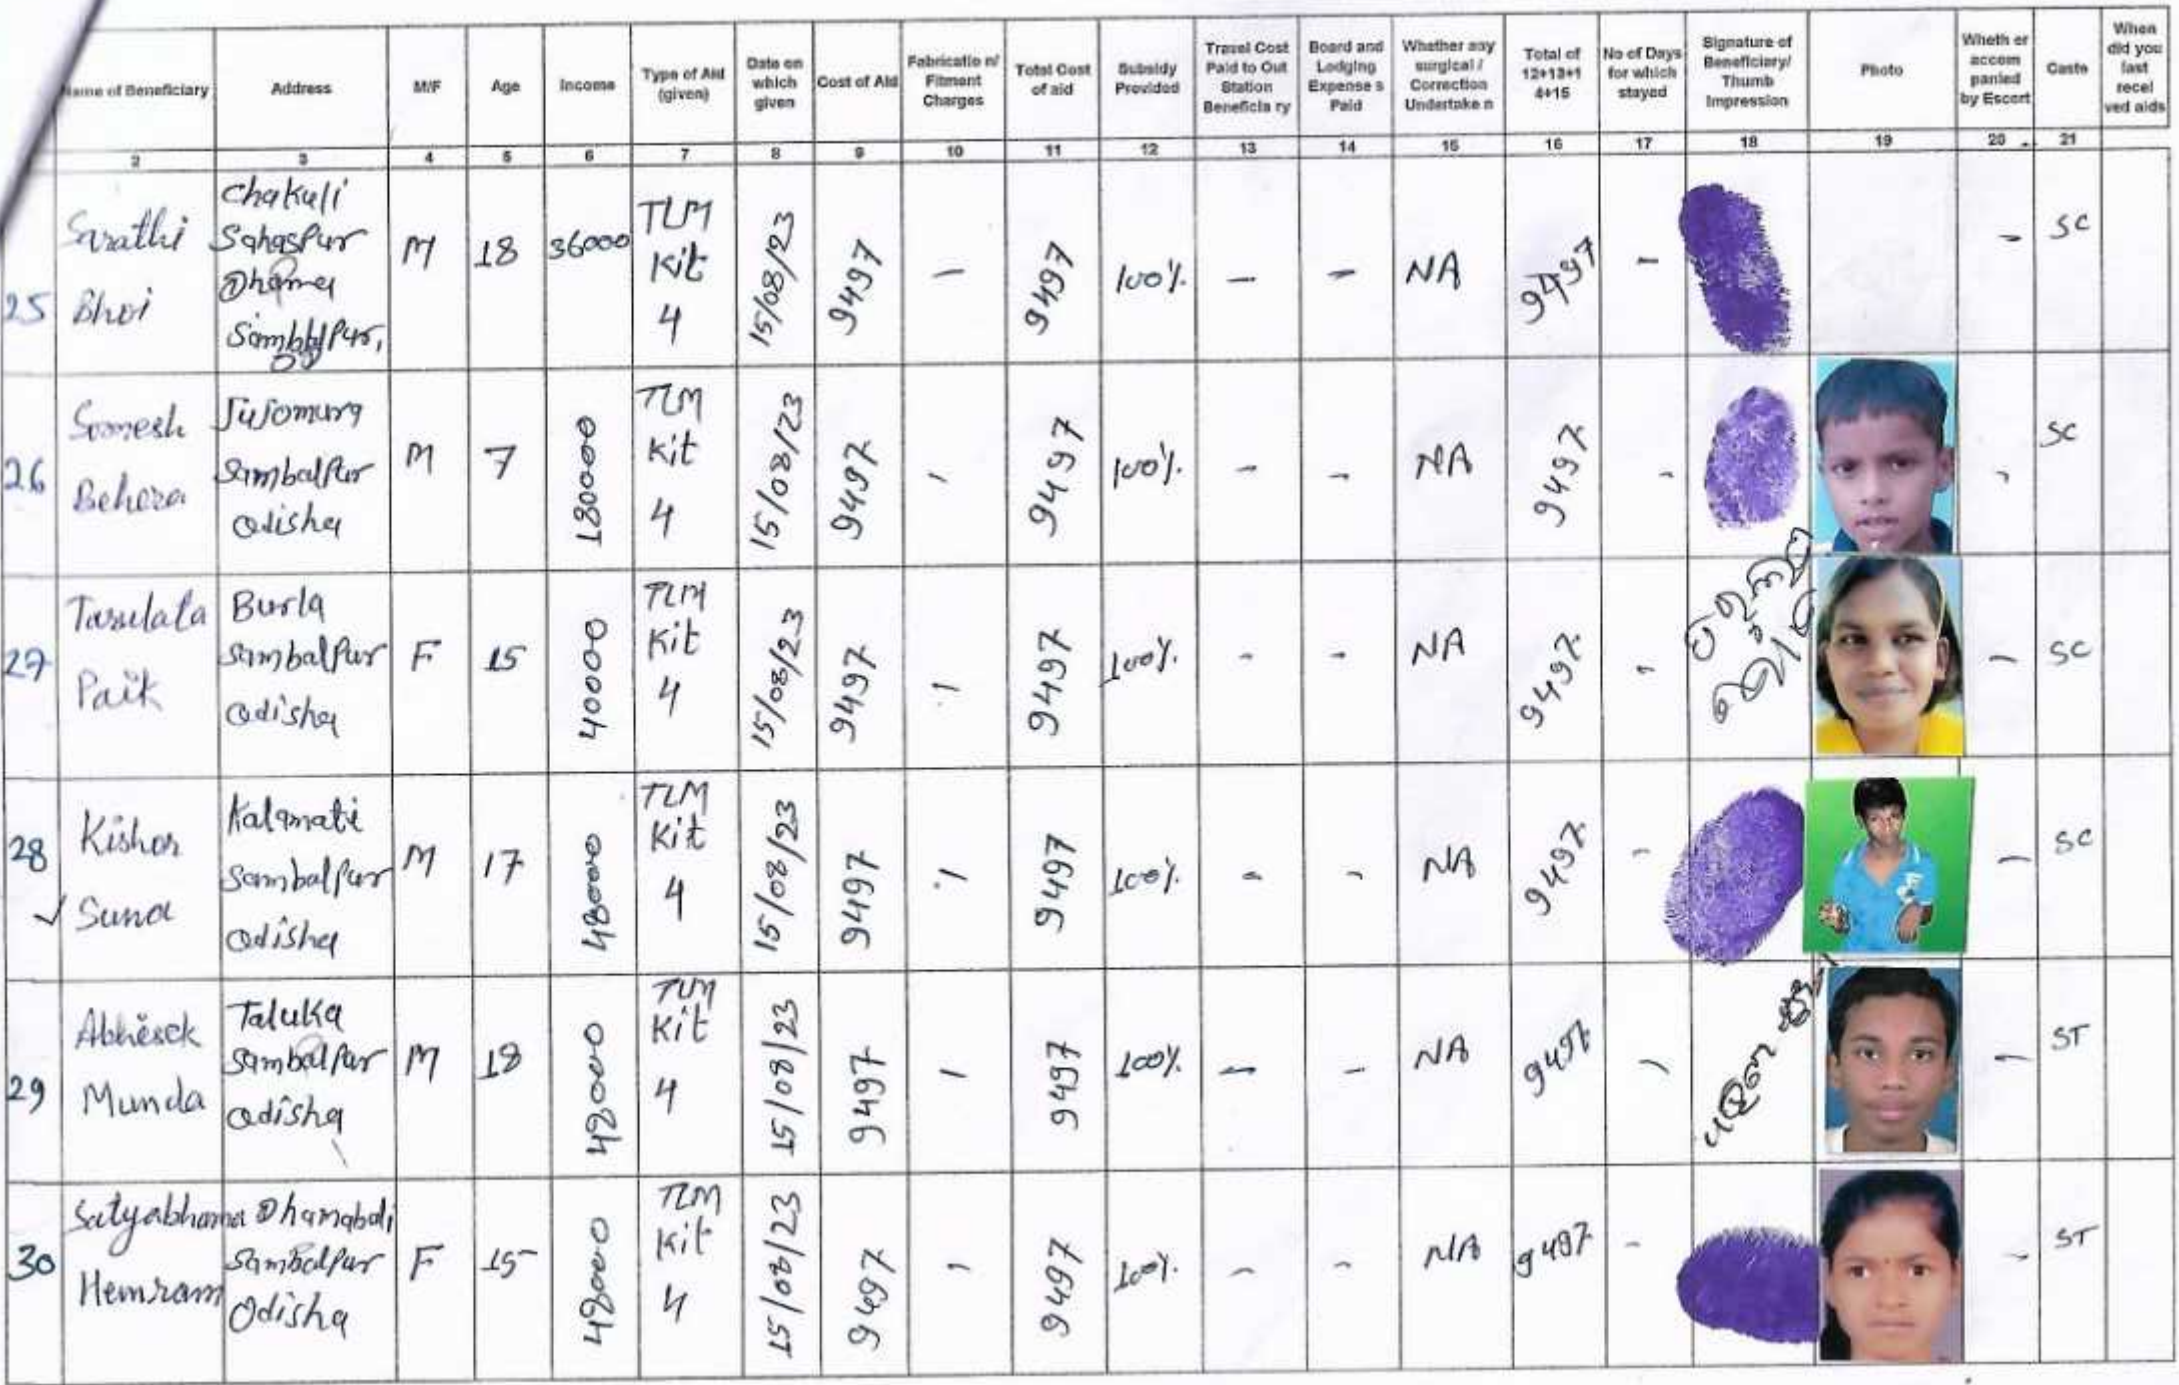 Name of Beneficiary Address M/F Age Income Type of Aid (given) Date on which given Cost of Aid Fabricatio n/ Fitment Charges Total Cost of aid Subsidy Provided Travel Cost Paid to Out Station Beneficia ry Board and Lodging Expense s Paid Whether any surgical / Correction Undertake n Total of 12+13+1 4+15 No of Days for which stayed Signature of Beneficiary/ Thumb Impression Photo Wheth er accom panied by Escort Caste When did you last recei ved aids
2 3 4 5 6 7 8 9 10 11 12 13 14 15 16 17 18 19 20 21
25 Sarathi Bhoi Chakuli Sahaspur Dhama Sambalpur, M 18 36000 TLM Kit 4 15/08/23 9497 - 9497 100% - - NA 9497 - - SC
26 Somesh Behera Jujomura Sambalpur Odisha M 7 180000 TLM Kit 4 15/08/23 9497 - 9497 100% - - NA 9497 - - SC
27 Tarulata Paik Burla Sambalpur Odisha F 15 40000 TLM Kit 4 15/08/23 9497 - 9497 100% - - NA 9497 - - SC
28 Kishor Suna Kalamati Sambalpur Odisha M 17 48000 TLM Kit 4 15/08/23 9497 - 9497 100% - - NA 9497 - - SC
29 Abhisek Munda Taluka Sambalpur Odisha M 18 48000 TLM Kit 4 15/08/23 9497 - 9497 100% - - NA 9497 - - ST
30 Satyabhama Hemram Dhamabdli Sambalpur Odisha F 15 48000 TLM Kit 4 15/08/23 9497 - 9497 100% - - NA 9497 - - ST